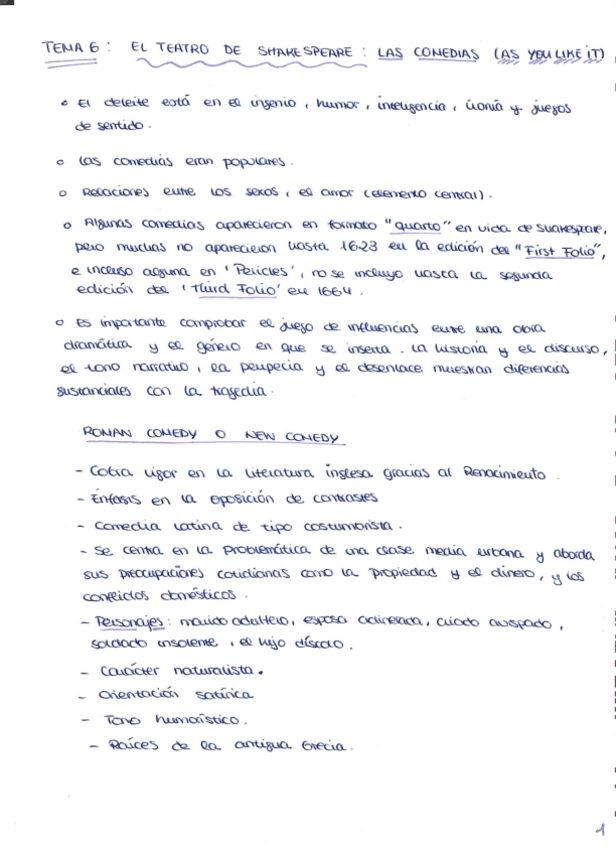 TEMA 6: EL TEATRO DE SHAKESPEARE: LAS COMEDIAS (AS YOU LIKE IT)
El deleite está en el ingenio, humor, inteligencia, ironía y juegos
de sentido.
Las comedias eran populares.
Relaciones entre los sexos, el amor (elemento central).
Algunas comedias aparecieron en formato "quarto" en vida de Suakespare,
pero muchas no aparecieron hasta 1623 en la edición del "First Folio",
e incluso alguna en 'Pericles', no se incluyo hasta la segunda
edición del 'Third Folio' en 1664.
Es importante comprobar el juego de influencias entre una obra
dramática y el género en que se inserta. La historia y el discurso,
el tono narrativo, la peripecia y el desenlace muestran diferencias
sustanciales con la tragedia.
ROMAN COMEDY O NEW COMEDY
- Cobra vigor en la literatura inglesa gracias al Renacimiento.
- Énfasis en la oposición de contrastes
- Comedia latina de tipo costumbrista.
- Se centra en la problemática de una clase media urbana y aborda
sus preocupaciones cotidianas como la propiedad y el dinero, y los
conflictos domésticos.
- Personajes: marido adultero, esposa adinerada, criado avispado,
soldado insolente, el hijo díscolo.
- Carácter naturalista.
- Orientación satírica
- Tono humorístico.
- Raíces de la antigua Grecia.
1